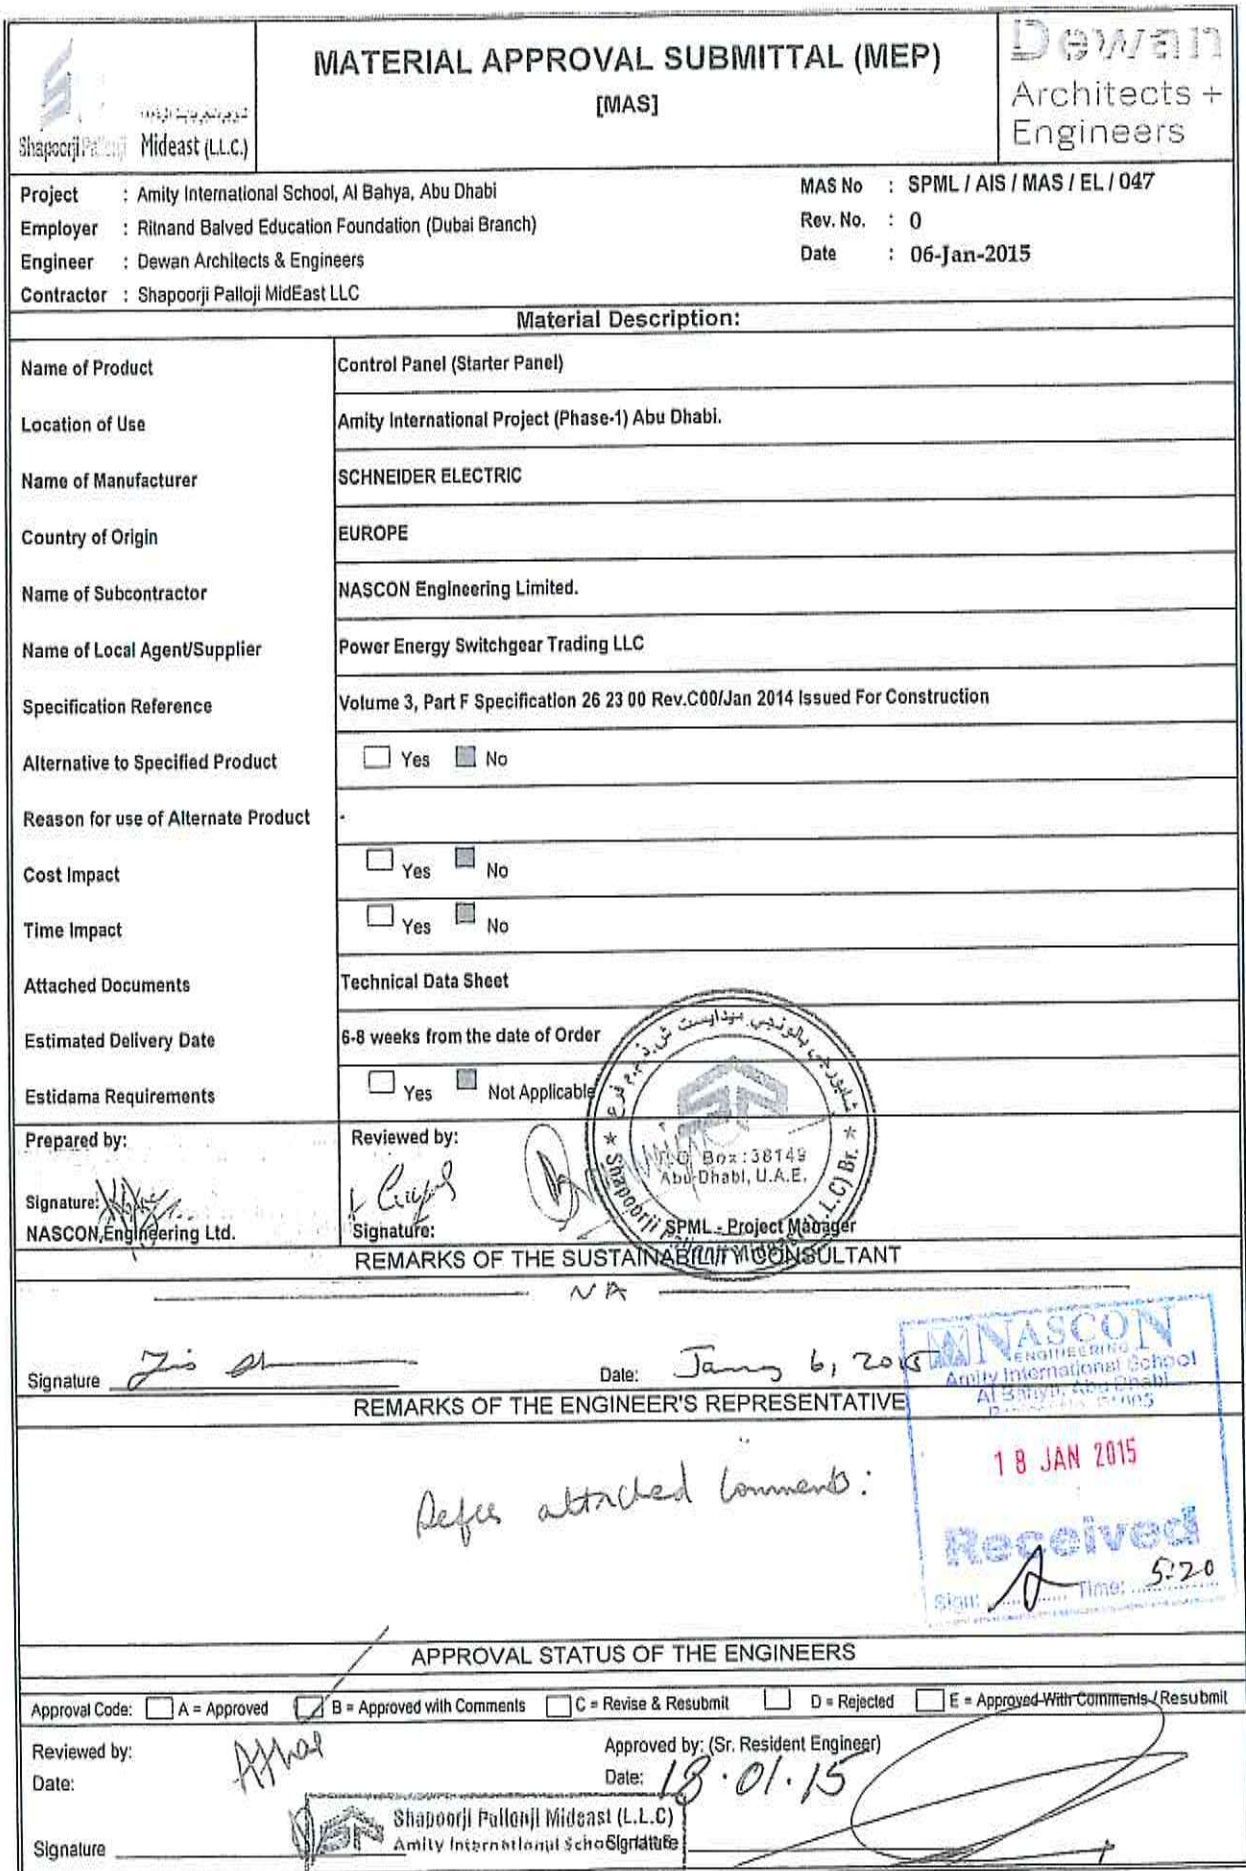 MATERIAL APPROVAL SUBMITTAL (MEP)
[MAS]
Shapoorji Pallonji Mideast (L.L.C.)
Dewan
Architects +
Engineers
Project : Amity International School, Al Bahya, Abu Dhabi
Employer : Ritnand Balved Education Foundation (Dubai Branch)
Engineer : Dewan Architects & Engineers
Contractor : Shapoorji Palloji MidEast LLC
MAS No : SPML / AIS / MAS / EL / 047
Rev. No. : 0
Date : 06-Jan-2015
Material Description:
Name of Product Control Panel (Starter Panel)
Location of Use Amity International Project (Phase-1) Abu Dhabi.
Name of Manufacturer SCHNEIDER ELECTRIC
Country of Origin EUROPE
Name of Subcontractor NASCON Engineering Limited.
Name of Local Agent/Supplier Power Energy Switchgear Trading LLC
Specification Reference Volume 3, Part F Specification 26 23 00 Rev.C00/Jan 2014 Issued For Construction
Alternative to Specified Product Yes No
Reason for use of Alternate Product -
Cost Impact Yes No
Time Impact Yes No
Attached Documents Technical Data Sheet
Estimated Delivery Date 6-8 weeks from the date of Order
Estidama Requirements Yes Not Applicable
شابورجي بالونجي ميدايست ش.ذ.م.م فرع
P.O. Box:38149
Abu Dhabi, U.A.E.
Shapoorji Pallonji Mideast (L.L.C) Br.
Prepared by:
Signature:
NASCON Engineering Ltd.
Reviewed by:
Signature:
SPML - Project Manager
REMARKS OF THE SUSTAINABILITY CONSULTANT
NA
Signature
Date: 6, 2015
NASCON
ENGINEERING
Amity International School
Al Bahya, Abu Dhabi
18 JAN 2015
Received
Sign: Time: 5:20
REMARKS OF THE ENGINEER'S REPRESENTATIVE
Refer attached Comments:
APPROVAL STATUS OF THE ENGINEERS
Approval Code: A = Approved B = Approved with Comments C = Revise & Resubmit D = Rejected E = Approved With Comments / Resubmit
Reviewed by:
Date:
Signature
Approved by: (Sr. Resident Engineer)
Date: 18.01.15
Shapoorji Pallonji Mideast (L.L.C)
Amity International School
Signature